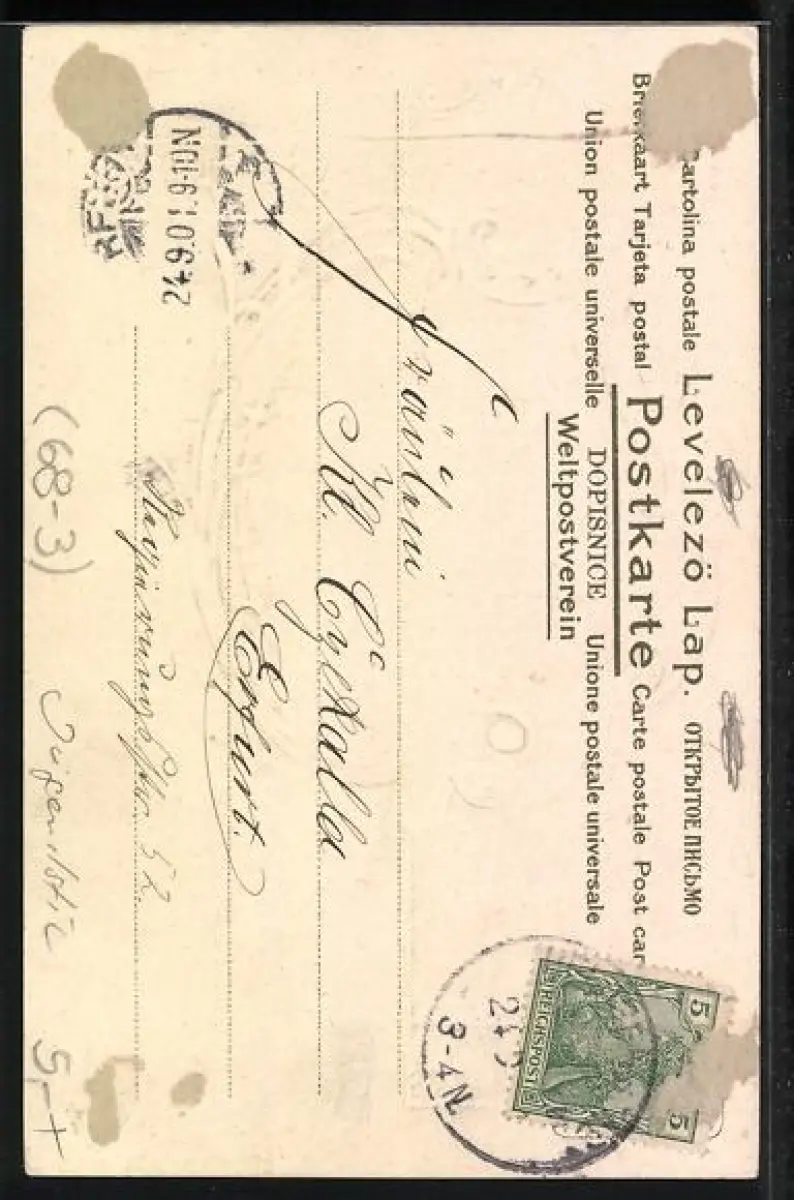 Cartolina postale Levelező Lap. ОТКРЫТОЕ ПИСЬМО
Briefkaart Tarjeta postal Postkarte Carte postale Post car
Union postale universelle DOPISNICE Unione postale universale
Weltpostverein
5 5
REICHSPOST
3-4N
Fräulein
Erfurt.
52
24.9.01.9-10N
(68-3) Jugendstil 5,-+